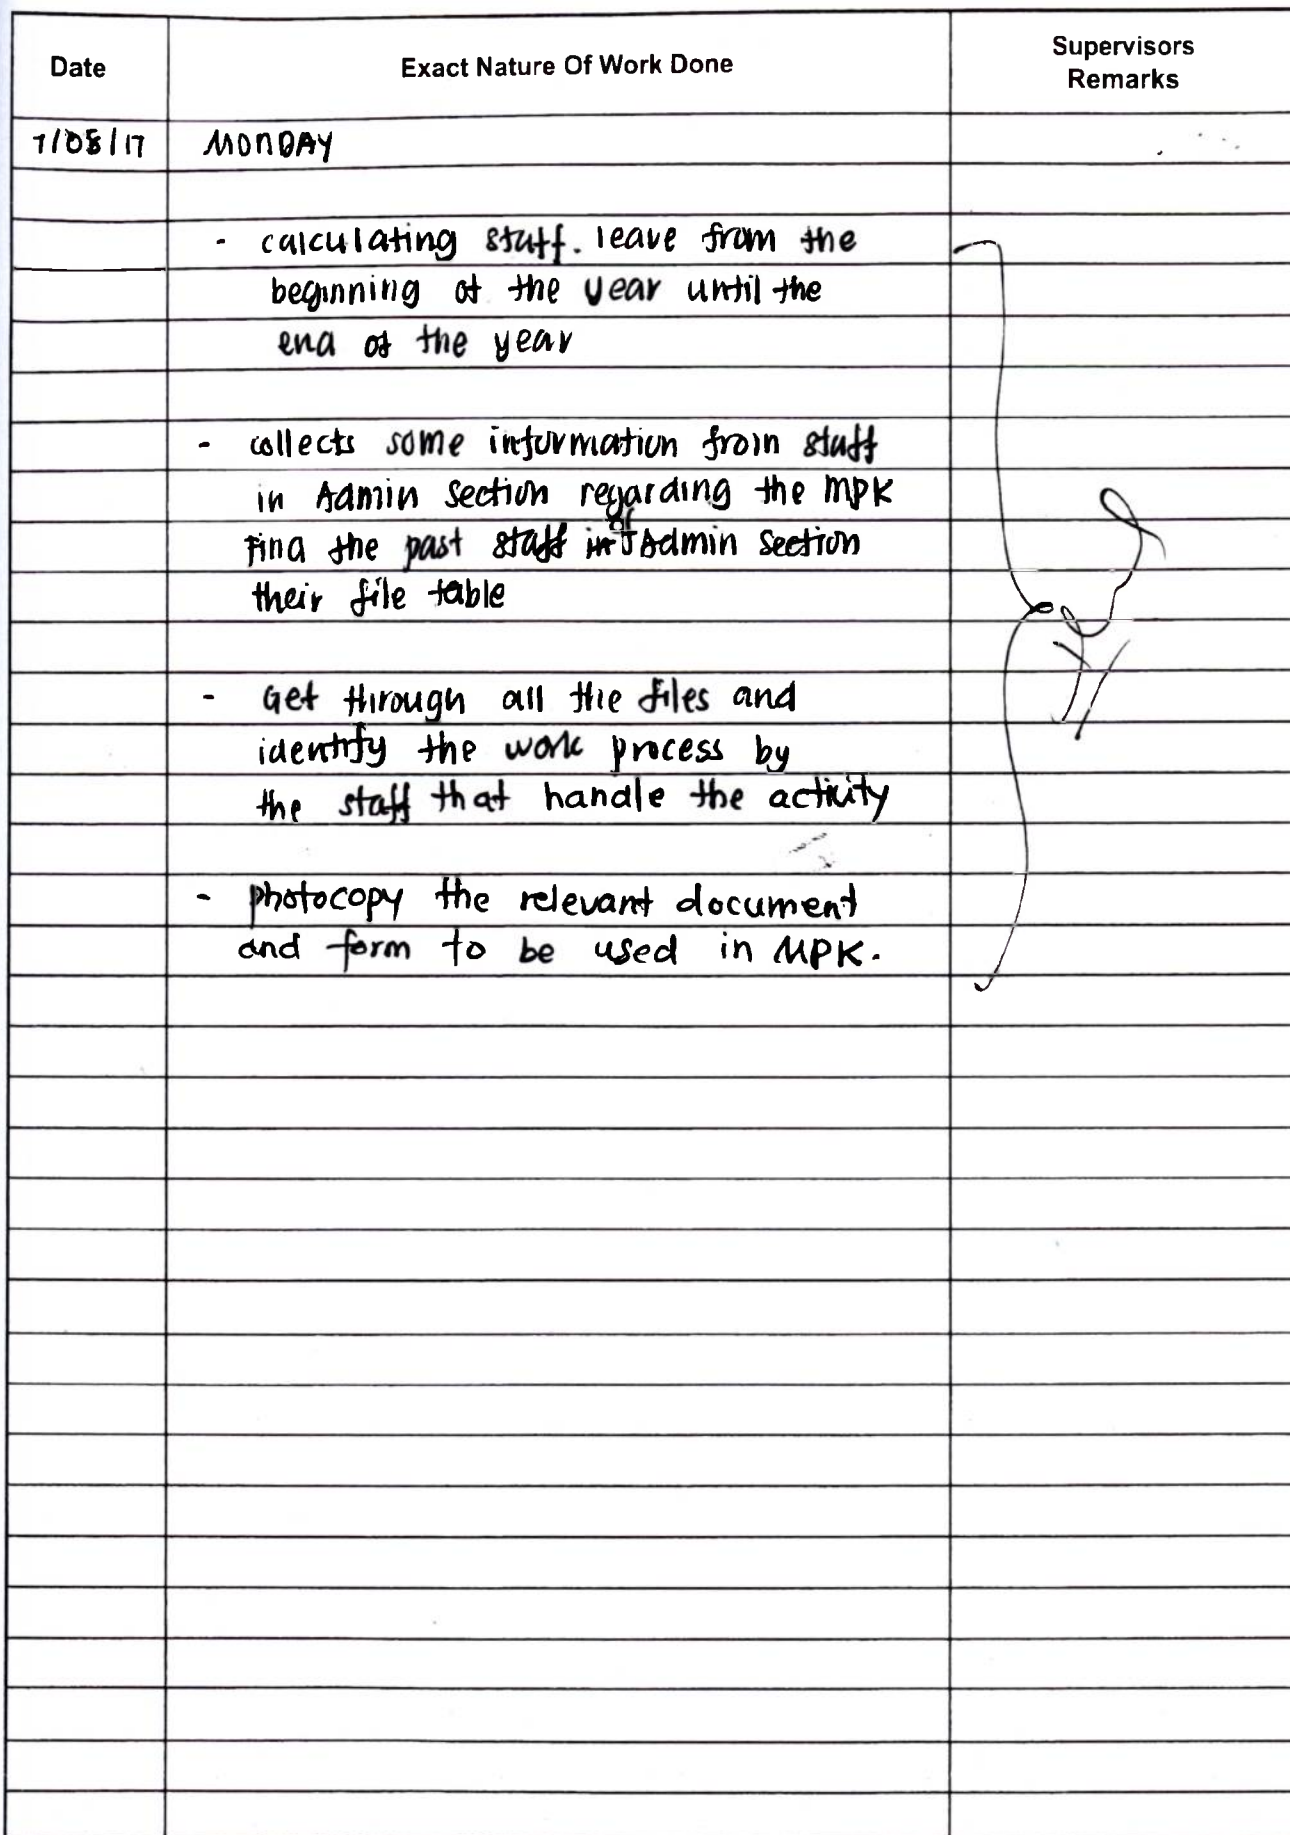 Date Exact Nature Of Work Done Supervisors Remarks
7/08/17 MONDAY
- calculating staff. leave from the
beginning of the year until the
end of the year
- collects some information from staff
in Admin section regarding the MPK
Find the past staff of Admin section
their file table
- Get through all the files and
identify the work process by
the staff that handle the activity
- photocopy the relevant document
and form to be used in MPK.